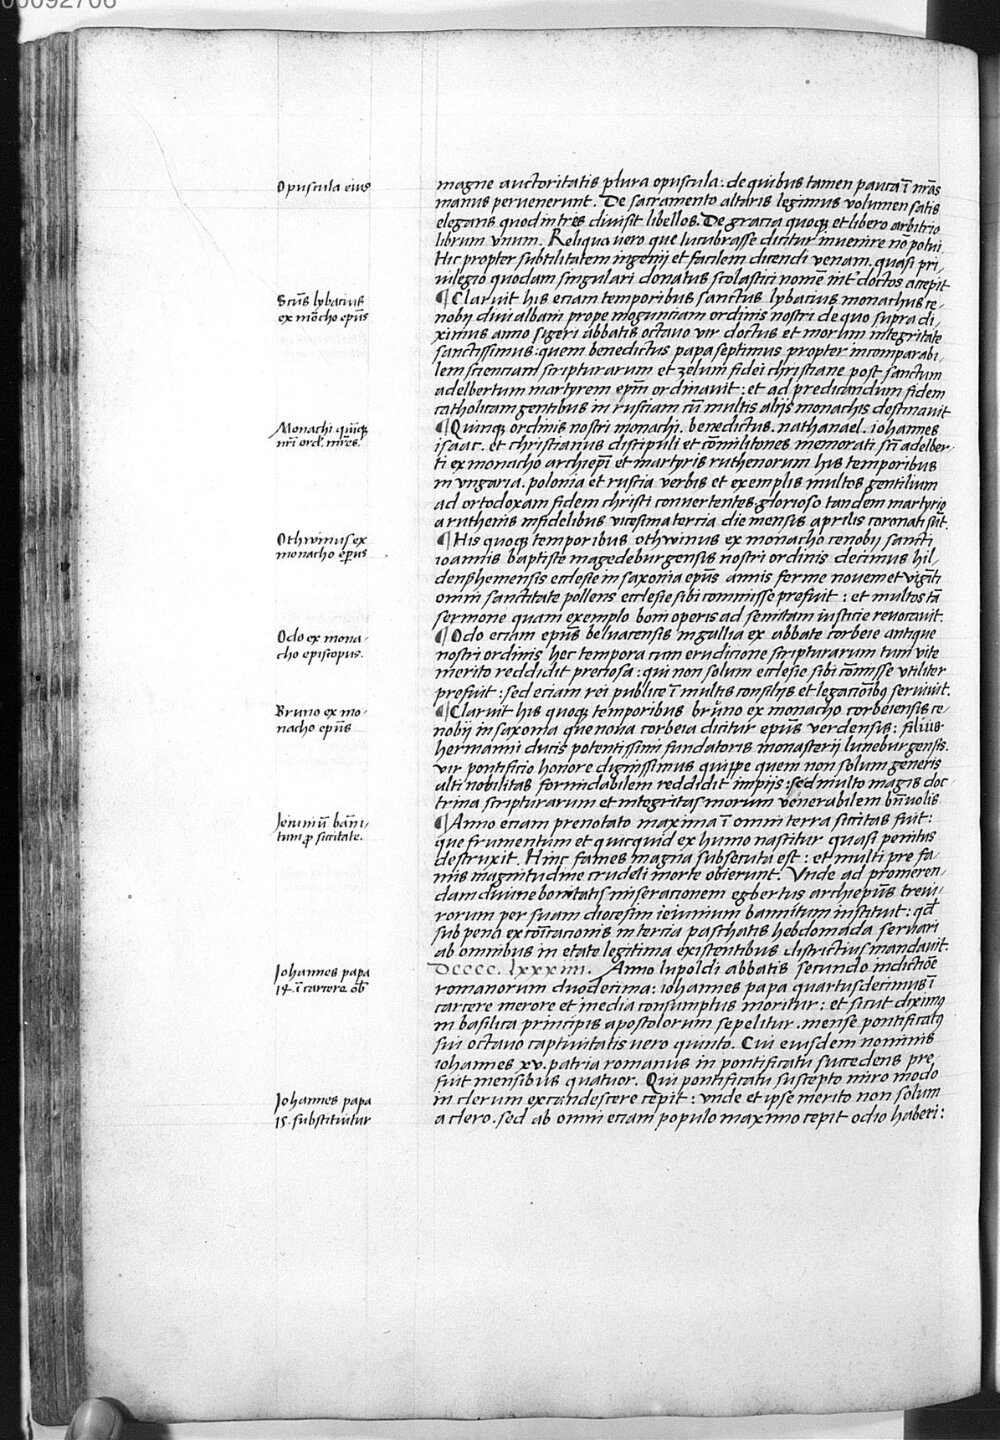 00092706
Opuscula eius
magne auctoritatis plura opuscula: de quibus tamen pauca ī nr̄as
manus pervenerunt. De sacramento altaris legimus volumen satis
elegans quod in tres divisit libellos. De gracia quoqꝫ et libero arbitrio
librum vnum. Reliqua vero que lucubrasse dicitur invenire nō potui.
Hic propter subtilitatem ingenij et facilem dicendi venam. quasi pri,
vilegio quodam singulari donatus scolastici nomē int' doctos accepit
Scūs lybacius
ex mōcho epūs
¶ Claruit his eciam temporibus sanctus lybacius monachus ce,
nobij divi albani prope moguntiam ordinis nostri de quo supra di,
ximus anno sigeri abbatis octavo vir doctus et morum integritate
sanctissimus: quem benedictus papa septimus propter incomparabi,
lem scienciam scripturarum et zelum fidei christiane post sanctum
adelbertum martyrem epm̄ ordinavit: et ad predicandum fidem
catholicam gentibus in rusciam cū multis alijs monachis destinavit
Monachi quiqꝫ
nr̄i ord. mr̄es.
¶ Quinqꝫ ordinis nostri monachi. benedictus. nathanael. iohannes
isaac. et christianus discipuli et cōmilitones memorati sc̄ti adelber-
ti ex monacho archiepī et martyris ruthenorum his temporibus
in vngaria. polonia et ruscia verbis et exemplis multos gentilium
ad ortodoxam fidem christi convertentes. glorioso tandem martyrio
a ruthenis infidelibus vicesima tercia die mensis aprilis coronati sūt.
Othwinus ex
monacho epūs
¶ His quoqꝫ temporibus othwinus ex monacho cenobij sancti
ioannis baptiste magedeburgensis nostri ordinis decimus hil,
denßhemensis ecclesie in saxonia epūs annis ferme novem et vigīti
omni sanctitate pollens ecclesie sibi commisse prefuit: et multos tā
sermone quam exemplo boni operis ad semitam iusticie revocavit.
Odo ex mona-
cho episcopus.
¶ Odo eciam epūs beluacensis in gallia ex abbate corbeie antique
nostri ordinis hec tempora cum erudicione scripturarum tum vite
merito reddidit preciosa: qui non solum ecclesie sibi cōmisse vtiliter
prefuit: sed eciam rei publice ī multis consilijs et legacioībꝫ servivit.
Bruno ex mo-
nacho epūs
¶ Claruit his quoqꝫ temporibus brŭno ex monacho corbeiensis ce-
nobij in saxonia que nova corbeia dicitur epūs verdensis: filius
hermanni ducis potentissimi fundatoris monasterij luneburgensis.
vir pontificio honore dignissimus quippe quem non solum generis
alti nobilitas formidabilem reddidit impijs: sed multo magis doc-
trina scripturarum et integritas morum venerabilem bn̄volis
Jeiuniū banī-
tum ꝓ siccitate.
¶ Anno eciam prenotato maxima ī omni terra siccitas fuit:
que frumentum et quicquid ex humo nascitur quasi penitus
destruxit. Hinc fames magna subsecuta est: et multi pre fa-
mis magnitudine crudeli morte obierunt. Vnde ad promeren,
dam divine bonitatis miseracionem egbertus archiepūs trevi,
rorum per suam diocesim ieiunium bannitum instituit: qd̄
sub pena excōīcacionis in tercia paschatis hebdomada servari
ab omnibus in etate legitima existentibus districtius mandavit.
Johannes papa
14. ī carcere ob̄
Dcccc. lxxxiiii. Anno lupoldi abbatis secundo indictiōe
romanorum duodecima: iohannes papa quartusdecimus ī
carcere merore et inedia consumptus moritur: et sicut diximꝰ
in basilica principis apostolorum sepelitur. mense pontificatꝰ
sui octavo captivitatis vero quinto. Cui eiusdem nominis
iohannes xv. patria romanus in pontificatu succedens pre,
fuit mensibus quatuor. Qui pontificatu suscepto miro modo
Johannes papa
15. substituitur
in clerum excandescere cepit: vnde et ipse merito non solum
a clero. sed ab omni eciam populo maximo cepit odio haberi: